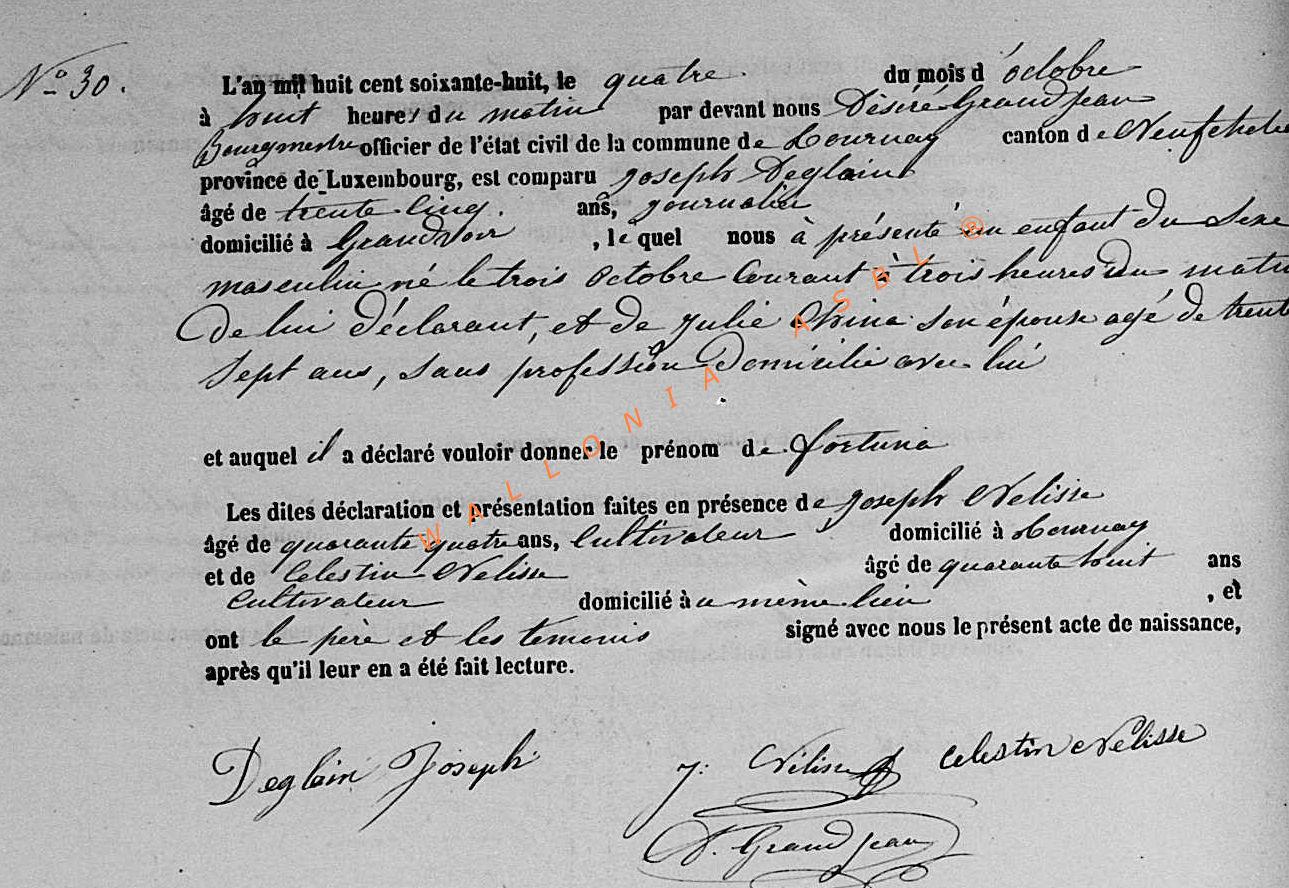 N° 30.
L'an mil huit cent soixante-huit, le quatre du mois d'octobre
à huit heures du matin par devant nous Désiré Grandjean
Bourgmestre officier de l'état civil de la commune de Tournay canton de Neufchate
province de Luxembourg, est comparu Joseph Deglain
âgé de trente cinq. ans, journalier
domicilié à Grandvoir, lequel nous à présenté un enfant du sexe
masculin né le trois octobre courant à trois heures du matin
de lui déclarant, et de Julie China son épouse agé de trente
sept ans, sans profession domicilié avec lui
et auquel il a déclaré vouloir donner le prénom de fortuna
Les dites déclaration et présentation faites en présence de Joseph Nelisse
âgé de quarante quatre ans, cultivateur domicilié à Tournay
et de Celestin Nelisse âgé de quarante huit ans
cultivateur domicilié au même lieu, et
ont le père et les temonis signé avec nous le présent acte de naissance,
après qu'il leur en a été fait lecture.
Deglain Joseph J: Nélisse Celestin Nélisse
D. Grandjean
WALLONIA ASBL ®